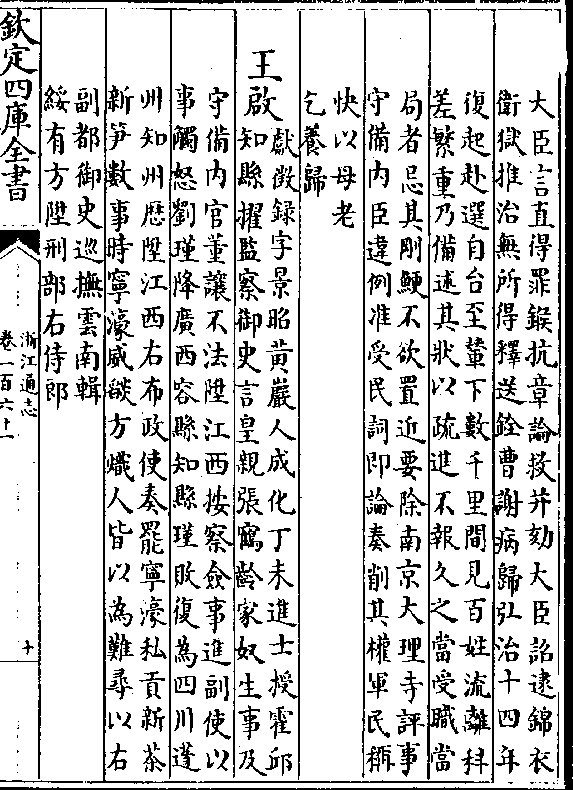 大臣言直得罪鍭抗章論救并劾大臣詔逮錦衣
衛獄推治無所得釋送銓曹謝病歸弘治十四年
復起赴選自台至輦下數千里間見百姓流離科
差繁重乃備述其狀以疏進不報久之當受職當
局者忌其剛鯁不欲置近要除南京大理寺評事
守備内臣違例准受民詞即論奏削其權軍民稱
快以母老
乞養歸
王啟
獻徵録字景昭黄巖人成化丁未進士授霍邱
知縣擢監察御史言皇親張鶴齡家奴生事及
守備内官董讓不法陞江西按察僉事進副使以
事觸怒劉瑾降廣西容縣知縣瑾敗復為四川蓬
州知州歴陞江西右布政使奏罷寧濠私貢新茶
新笋數事時寧濠威燄方熾人皆以為難尋以右
副都御史巡撫雲南輯
綏有方陞刑部右侍郎
欽定四庫全書
浙江通志
卷一百六十一
十